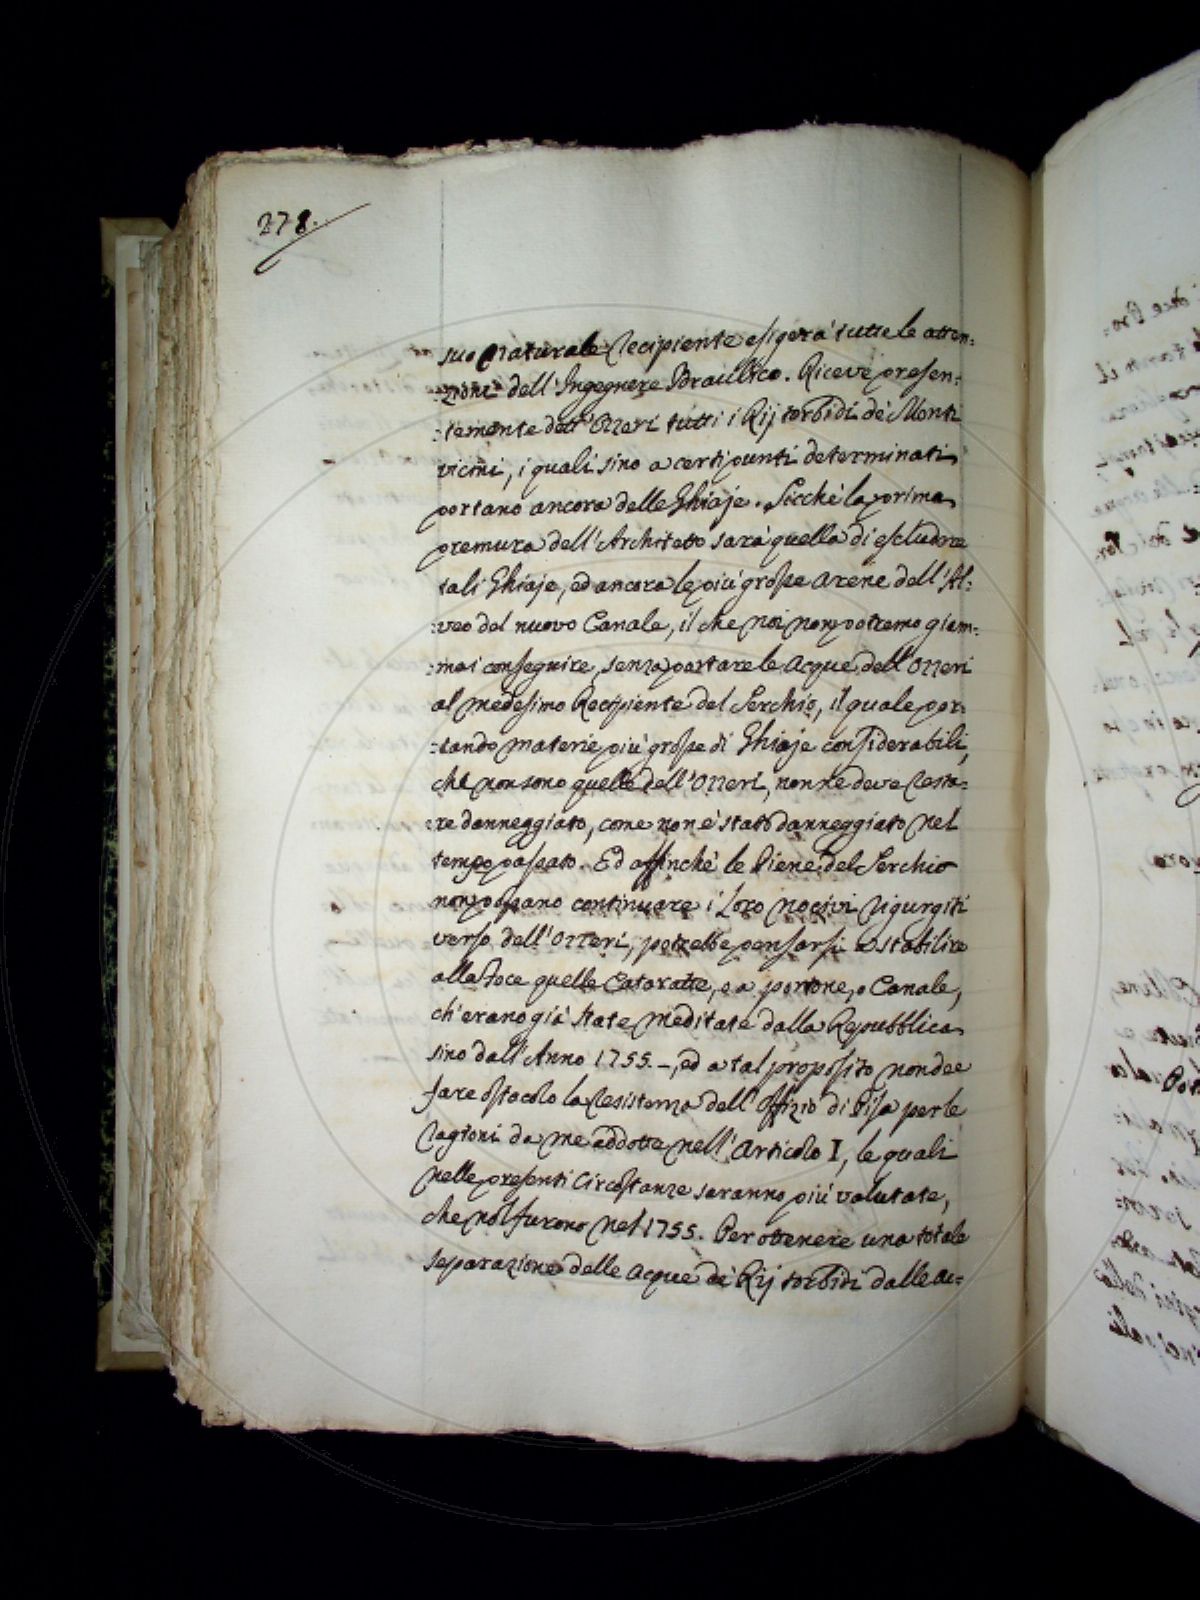 278.
suo naturale recipiente esigerà tutte le atten:
:zioni dell'Ingegnere Idraulico. Riceve presen:
:temente dell'Ozzeri tutti i Rij torbidi de' Monti
vicini, i quali sino a certi punti determinati
portano ancora delle Ghiaje. Sicchè la prima
premura dell'Architetto sarà quella di escludere
tali Ghiaje, ed ancora le più grosse arene dell'Al:
:veo del nuovo Canale, il che noi non potremo giam:
:mai conseguire, senza portare le acque dell'Ozzeri
al medesimo Recipiente del Serchio, il quale por:
:tando materie più grosse di Ghiaje considerabili,
che non sono quelle dell'Ozzeri, non ne deve resta:
:re danneggiato, come non è stato danneggiato nel
tempo passato. Ed affinchè le Piene del Serchio
non possano continuare i loro nocivi rigurgiti
verso dell'Ozzeri, potrebbe pensarsi a stabilire
alla Foce quelle Cataratte, o a portone, o Canale,
ch'erano già state meditate dalla Repubblica
sino dall'Anno 1755.-, ed a tal proposito non dee
fare ostacolo la resistenza dell'Offizio di Pisa per le
ragioni da me addotte nell'Articolo I, le quali
nelle presenti circostanze saranno più valutate,
che nol furono nel 1755. Per ottenere una totale
separazione delle acque de' Rij torbidi dalle ac: